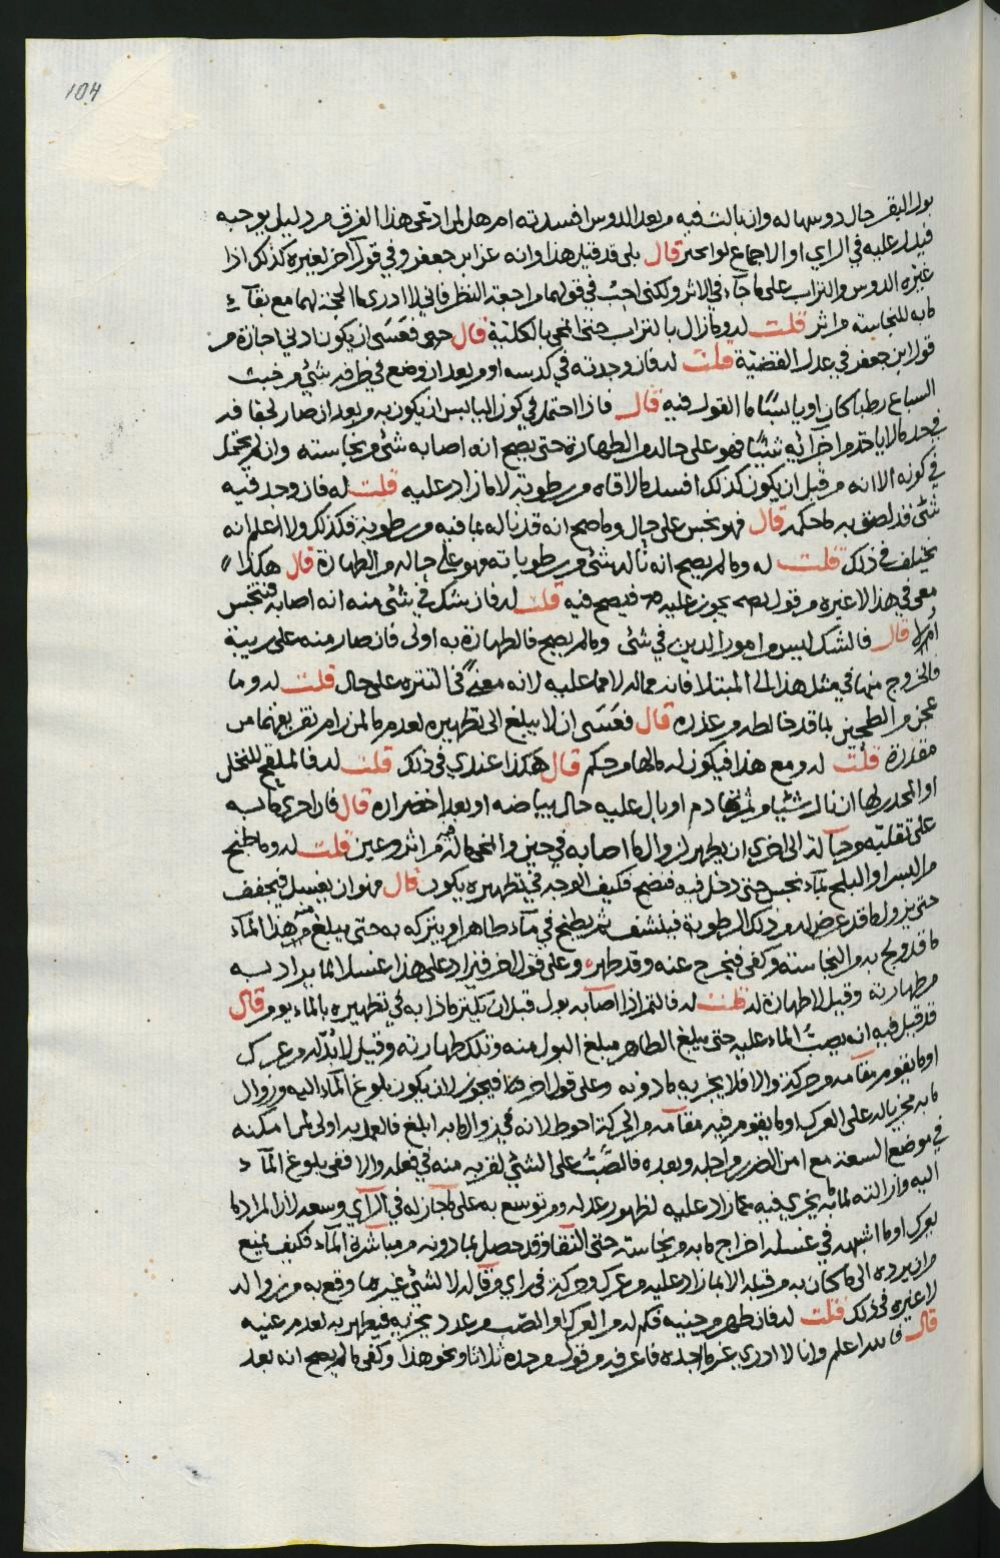 104
بول البقر حال دوسها له وان بالت فيه من بعد الدوس افسدته ام هل لمن ادعى هذا الفرق من دليل يوجبه
فيدل عليه في الراي او الاجماع لو انحتر قال بلى قد قيل هذا وانه عن ابن جعفر وفي قول آخر لغيره كذلك اذا
غيره الدوس والتراب على ما جآء في الاثر ولكني احب في قولهما مراجعة النظر فاني لا ادري ما الحجة لهما مع بقآء
ما به للنجاسة من اثر قلت له وما زال بالتراب حتى انمحى بالكلية قال حتى فعسى ان يكون ادنى اجازة من
قول ابن جعفر في عدل القضية قلت له فان وجدته في كدسه او من بعد ان وضع في ظرفه شئ من خبث
السباع رطبا كان او يابسًا ما القول فيه قال فاذا احتمل في كون اليابس ان يكون به من بعد ان صار لجفافه
في حد ما لا ياخذ من اجزائه شيئًا فهو على حاله من الطهارة حتى يصح انه اصابه شئ من نجاسته وان لم يحتمل
في كونه الا انه من قبل ان يكون كذلك افسد ما لاقاه من رطوبته لا ما زاد عليه قلت له فان وجد فيه
شئ قد لصق به ما حكمه قال فهو نجس على حال وما صح انه قد ناله بما فيه من رطوبة فكذلك ولا اعلم انه
يختلف في ذلك قلت له وما لم يصح انه ناله شئ من رطوباته فهو على حاله من الطهارة قال هكذا
معي في هذا لا غيره من قول يصح يجوز عليه فيصح فيه قلت له فان شك في شئ منه انه اصابه فتنجس
ام لا قال فالشك ليس من امور الدين في شئ وما لم يصح فالطهارة به اولى فان صار منه على ريبة
فالخروج منها في مثل هذا الى المبتلا فانه مما له لا مما عليه لانه معنًى في التنزه على حال قلت له وما
عجن من الطحين بما قد خالطه من عذره قال فعسى ان لا يبلغ الى تطهيره لعدم ما لمن رام تفريقهما من
مقدرة قلت له ومع هذا فيكون له ما لها من حكم قال هكذا عندي في ذلك قلت له فالملقح للنخل
او المحدر لها ان نال شيئا من ثمرتها دم او بال عليه حال بياضه او بعد اخضراره قال فان اجرى ما به
على تقلبه من حالة الى اخرى ان يطهر لزوال ما اصابه في حين وانمحى ما له من اثر وعين قلت له وما طبخ
من البسر او البلح بمآء نجس حتى دخل فيه فنضج فكيف الوجه في تطهيره يكون قال فهو ان يغسل فيجفف
حتى يزول ما قد عرض له من ذلك الرطوبة فينشف ثم يطبخ في مآء طاهر او يترك به حتى يبلغ منه هذا المآء
ما قد ولج به من النجاسة وكفى فتخرج عنه وقد طهره وعلى قول اخر فيزاد على هذا غسل لما يراد به
من طهارته وقيل لا طهارة له قلت له فالتمر اذا اصابه بول قبل ان يكنز ماذا به في تطهيره بالماء يومر قال
قد قيل فيه انه يصبُّ الماء عليه حتى يبلغ الطاهر مبلغ البول منه وتلك طهارته وقيل لا بد له من عرك
او ما يقوم مقامه من حركة والا فلا يجزيه ما دونه وعلى قول اخر فيجوز لان يكون بلوغ المآء اليه وزوال
ما به مجزيا له على العرك او ما يقوم فيه مقامه من الحركة احوط لانه في زوال ما به ابلغ فالعمل به اولى لمن امكنه
في موضع السعة مع امن الضرر من اجله وبعده فالصَّبُّ على الشئ لقربه منه في فعله والا ففي بلوغ المآء
اليه وازالته لما به يجري فيه عما زاد عليه لظهور عدله ومن توسع به على ما جاز له في الرأي وسعه لان المراد بما
يعرك او ما اشبهه في غسله اخراج ما به من نجاسته حتى النقا وقد حصل بما دونه من مباشرة المآء فكيف يمنع
من ان يرده الى ما كان به من قبله الا بما زاد عليه من عرك وحركة في رأي من قاله لا لشئ غير ما وقع به من زواله
لا غيره في ذلك قلت له فان طهر من حينه فكم له من العرك او الصّب من عدد يجزيه فيطهر به لعدم عينه
قال فالله اعلم وانا لا ادري بغير ما اجده فاعرفه من قول من حده ثلاثا ونحو هذا وكفى ما لم يصح انه بعد